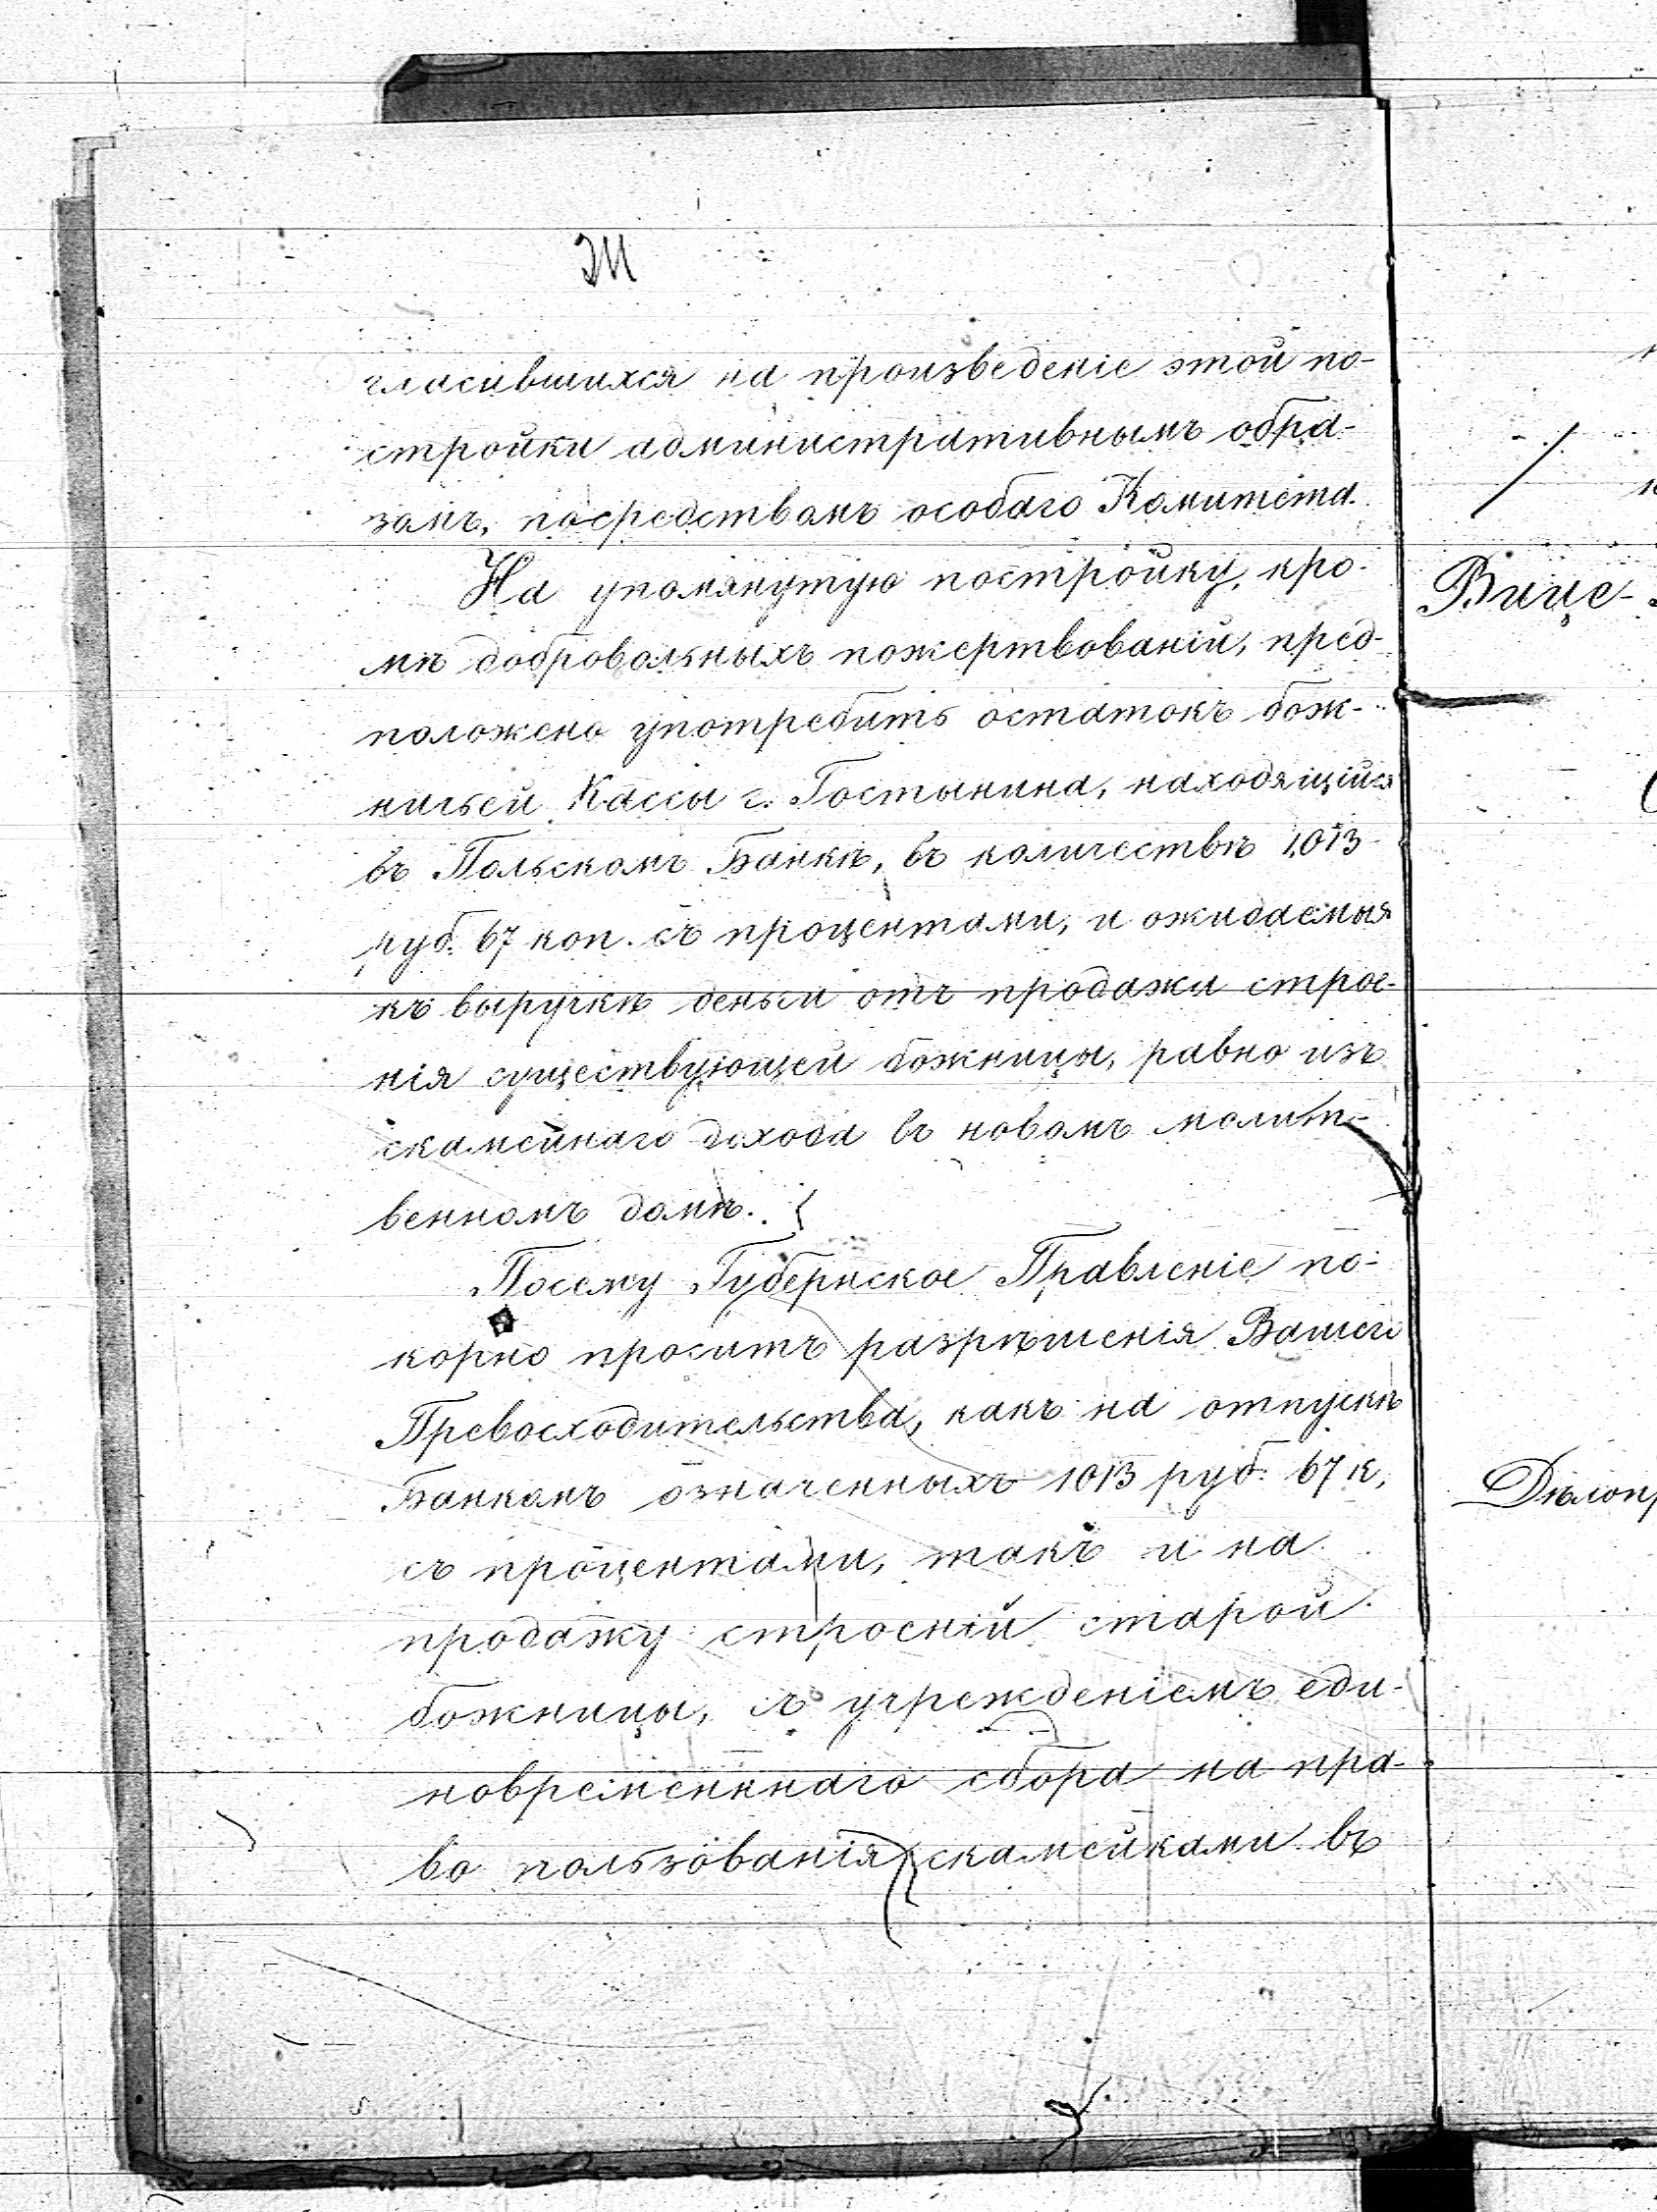 гласившихся на произведеніе этой по-
стройки административнымъ обра-
зомъ, посредствомъ особаго Комитета.
На упомянутую постройку, кро-
мѣ добровольныхъ пожертвованій, пред-
положено употребить остатокъ бож-
ничьей Кассы г. Гостынина, находящійся
въ Польскомъ Банкѣ, въ количествѣ 1,013
руб. 67 коп. съ процентами, и ожидаемыя
къ выручкѣ деньги отъ продажи строе-
нія существующей божницы, равно изъ
скамейнаго дохода въ новомъ молит-
венномъ домѣ.
Посему Губернское Правленіе по-
корно проситъ разрѣшенія Вашего
Превосходительства, какъ на отпускъ
Банкомъ означенныхъ 1013 руб. 67 к.
съ процентами, такъ и на
продажу строеній старой
божницы, съ учрежденіемъ еди-
новременнаго сбора на пра-
во пользованія скамейками въ
Вице-
Дѣлопр